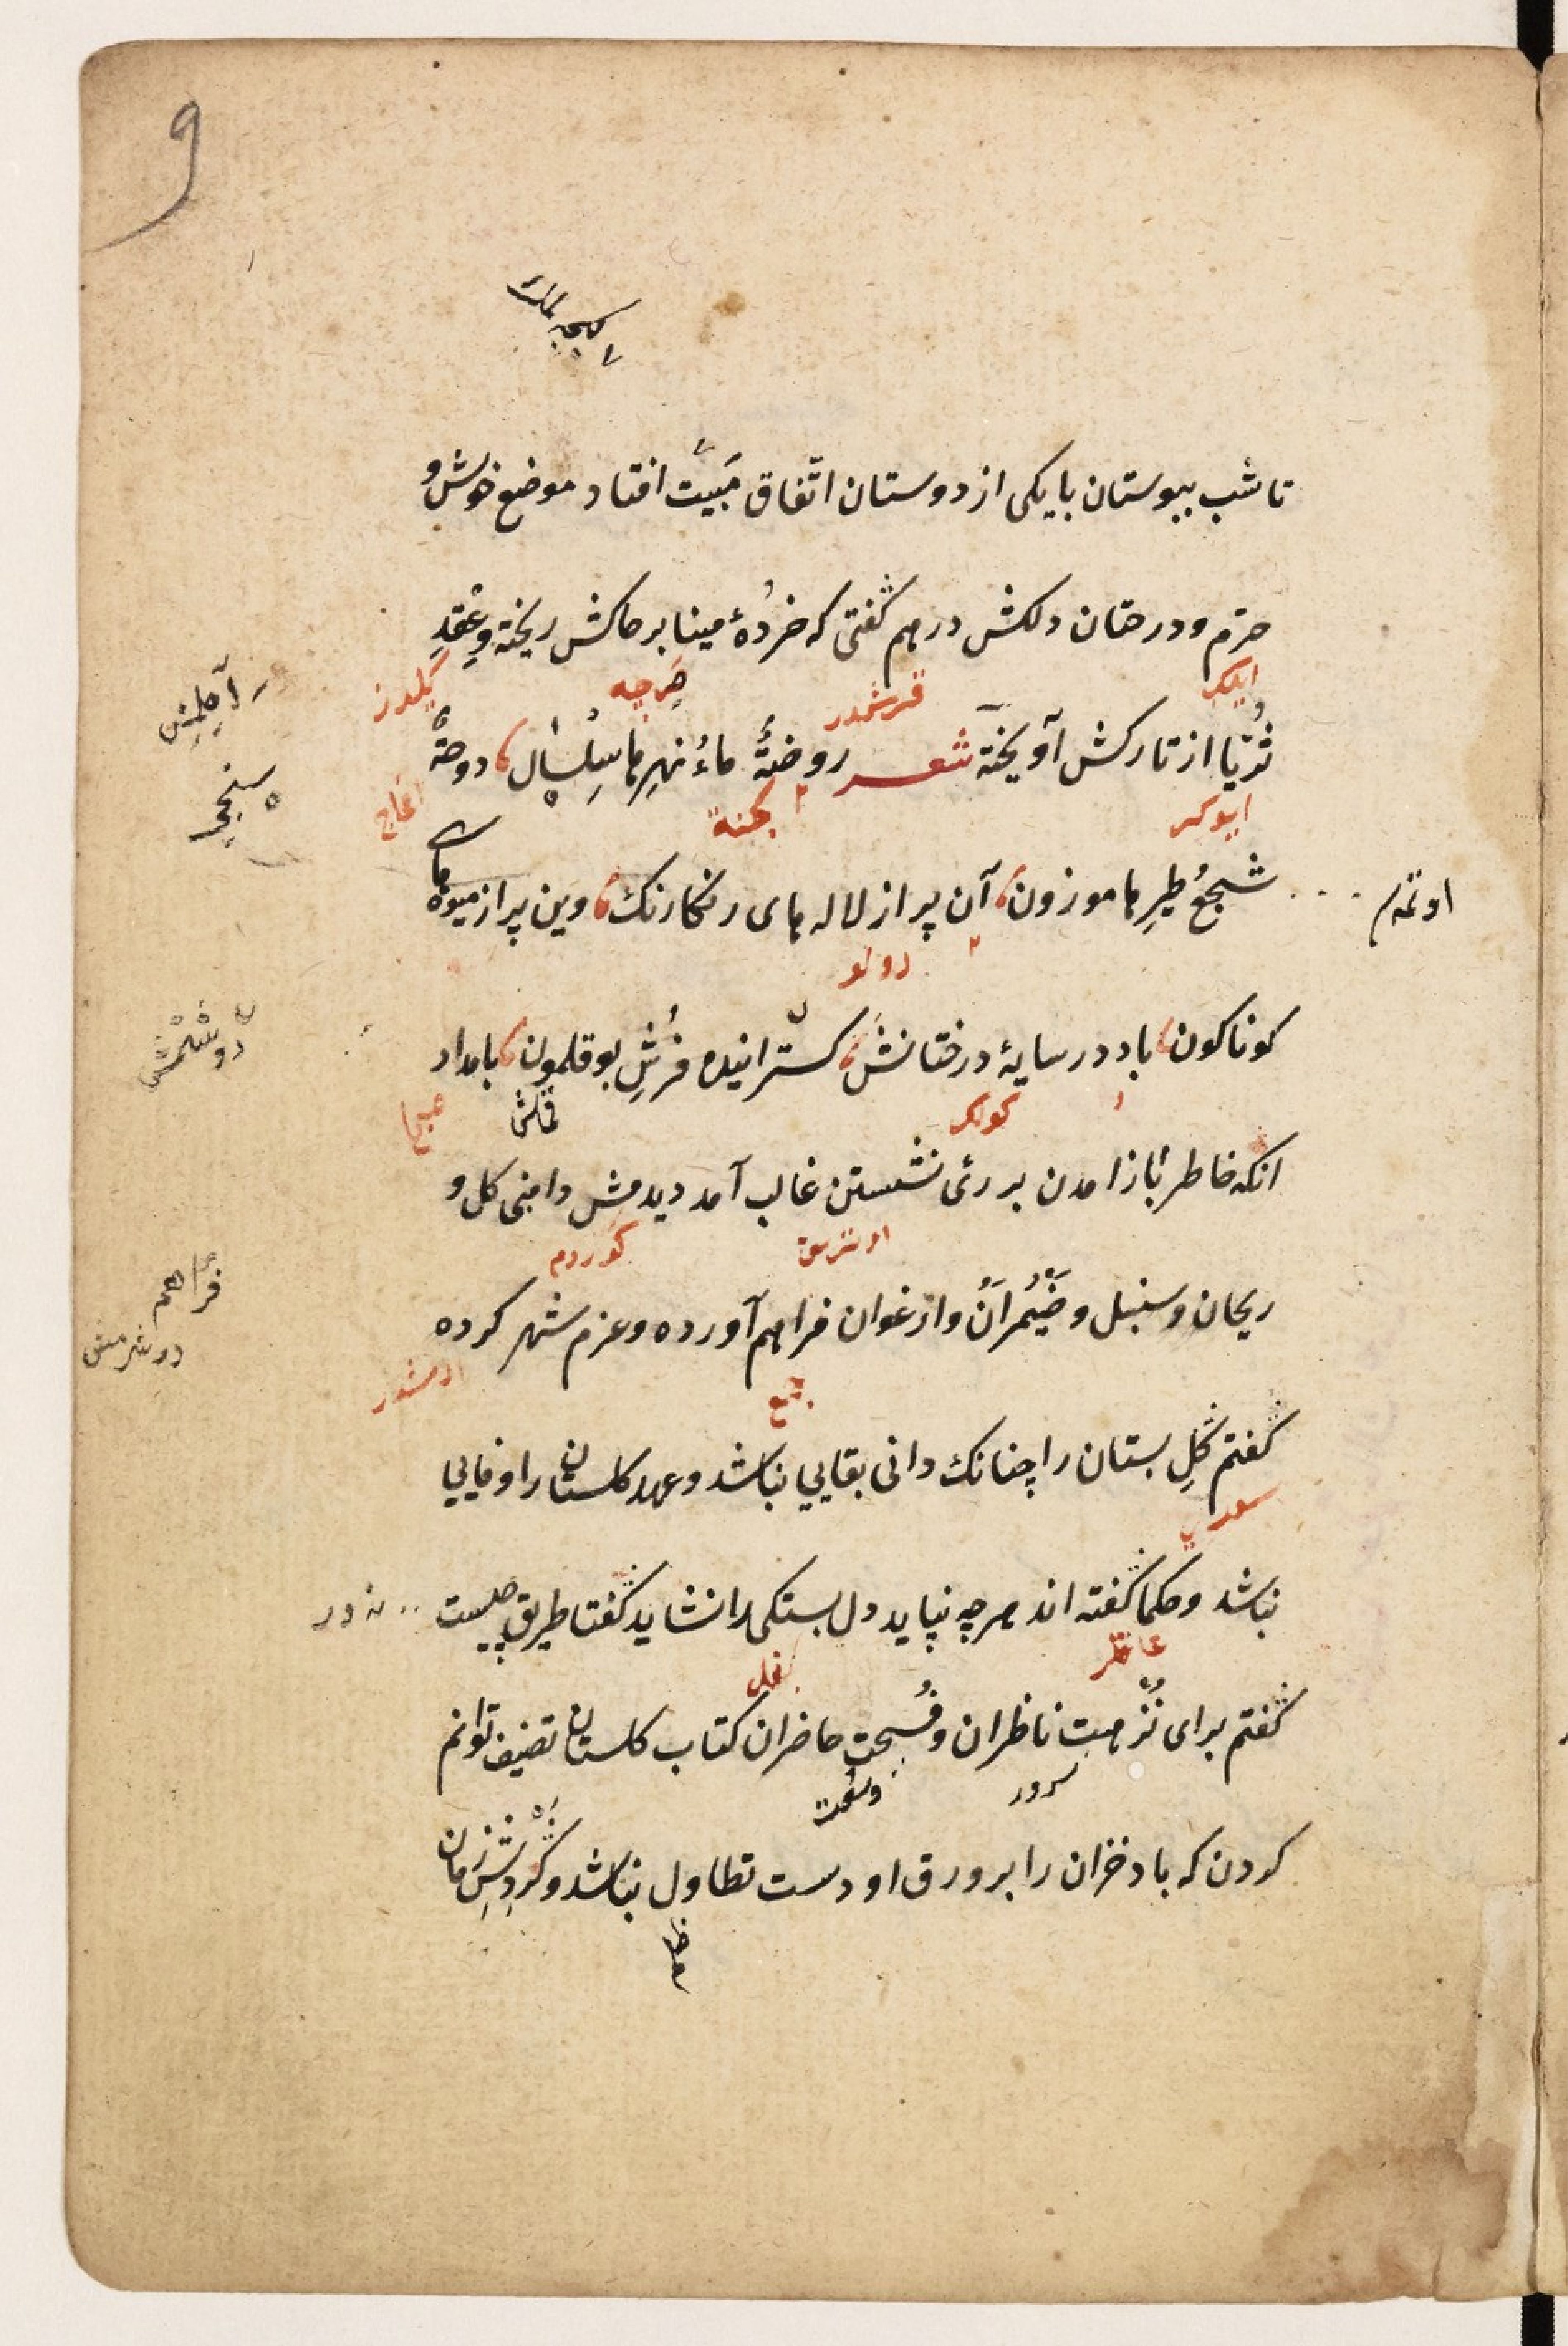 9
کیجه لمك
تا شب ببوستان با یکی از دوستان اتّفاق مَبیَت افتاد موضع خوش و
خرّم و درختان دلکش درهم گفتی که خردۀ مینا بر خاکش ریخته و عِقدِ
ثُریّا از تارکش آویخته شعر روضةٌ ماءُ نهرِها سِلسال دوحةٌ
سَجعُ طیرِها موزون آن پر از لاله های رنکارنك وین پر از میوه های
کوناکون باد در سایۀ درختانش کسترانیده فرشِ بوقلمون بامداد
انکه خاطر باز امدن بر رئی نشستن غالب آمد دیدمش دامنی کل و
ریحان و سنبل و ضَیْمُرانْ و ارغوان فراهم آورده و عزم شهر کرده
کفتم گلِ بستان را چنانك دانی بقایی نباشد و عهد کلستان را وفایی
نباشد و حکما گفته اند هر چه نپاید دل بستکی را نشاید گفتا طریق چیست
گفتم برای نُزهت ناظران و فُسحت حاضران کتاب کلستان تصنیف توانم
کردن که باد خزان را بر ورق او دست تطاول نباشد و گردِشِ زمان
صباح
قماش
جمع
سرور
وسعت
ظلم
فراهم